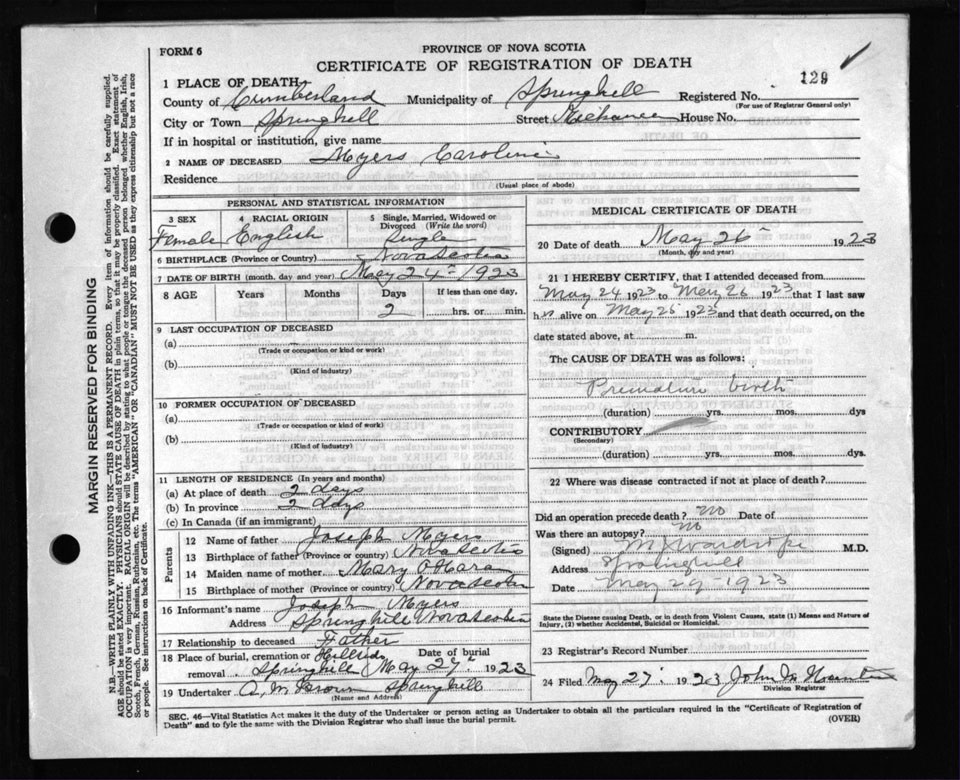 FORM 6
PROVINCE OF NOVA SCOTIA
CERTIFICATE OF REGISTRATION OF DEATH
129
1 PLACE OF DEATH
County of Cumberland Municipality of Springhill Registered No.
(For use of Registrar General only)
City or Town Springhill Street Mechanic House No.
If in hospital or institution, give name
2 NAME OF DECEASED Myers Caroline
Residence
(Usual place of abode)
PERSONAL AND STATISTICAL INFORMATION
3 SEX 4 RACIAL ORIGIN 5 Single, Married, Widowed or Divorced (Write the word)
Female English Single
6 BIRTHPLACE (Province or Country) Nova Scotia
7 DATE OF BIRTH (month, day and year) May 24th 1923
8 AGE Years Months Days If less than one day,
2 hrs. or min.
9 LAST OCCUPATION OF DECEASED
(a)
(Trade or occupation or kind or work)
(b)
(Kind of industry)
10 FORMER OCCUPATION OF DECEASED
(a)
(Trade or occupation or kind of work)
(b)
(Kind of industry)
11 LENGTH OF RESIDENCE (In years and months)
(a) At place of death 2 days
(b) In province 2 days
(c) In Canada (if an immigrant)
Parents
12 Name of father Joseph Myers
13 Birthplace of father (Province or country) Nova Scotia
14 Maiden name of mother Mary O'Hara
15 Birthplace of mother (Province or country) Nova Scotia
16 Informant's name Joseph Myers
Address Springhill Nova Scotia
17 Relationship to deceased Father
18 Place of burial, cremation or removal Hillside Springhill Date of burial May 27th 1923
19 Undertaker A. M Brown Springhill
(Name and Address)
MEDICAL CERTIFICATE OF DEATH
20 Date of death May 26 1923
(Month, day and year)
21 I HEREBY CERTIFY, that I attended deceased from
May 24 1923 to May 26 1923 that I last saw
h alive on May 26 1923 and that death occurred, on the
date stated above, at m.
The CAUSE OF DEATH was as follows:
Premature birth
(duration) yrs. mos. dys
CONTRIBUTORY
(Secondary)
(duration) yrs. mos. dys.
22 Where was disease contracted if not at place of death?
Did an operation precede death? no Date of
Was there an autopsy? no
(Signed) Wardrope M.D.
Address Springhill
Date May 29 - 1923
State the Disease causing Death, or in death from Violent Causes, state (1) Means and Nature of Injury, (2) whether Accidental, Suicidal or Homicidal.
23 Registrar's Record Number
24 Filed May 27 1923 John M
Division Registrar
SEC. 46—Vital Statistics Act makes it the duty of the Undertaker or person acting as Undertaker to obtain all the particulars required in the "Certificate of Registration of
Death" and to fyle the same with the Division Registrar who shall issue the burial permit. (OVER)
MARGIN RESERVED FOR BINDING
N.B—WRITE PLAINLY WITH UNFADING INK—THIS IS A PERMANENT RECORD. Every item of information should be carefully supplied.
AGE should be stated EXACTLY. PHYSICIANS should STATE CAUSE OF DEATH in plain terms, so that it may be properly classified. Exact statement of
OCCUPATION is very important. RACIAL ORIGIN will be described by stating to what people or tongue the deceased person belonged, whether English, Irish,
Scotch, French, German, Russian, Ruthenian, etc. The terms "AMERICAN" OR "CANADIAN" MUST NOT BE USED as they express citizenship but not a race
or people. See instructions on back of Certificate.